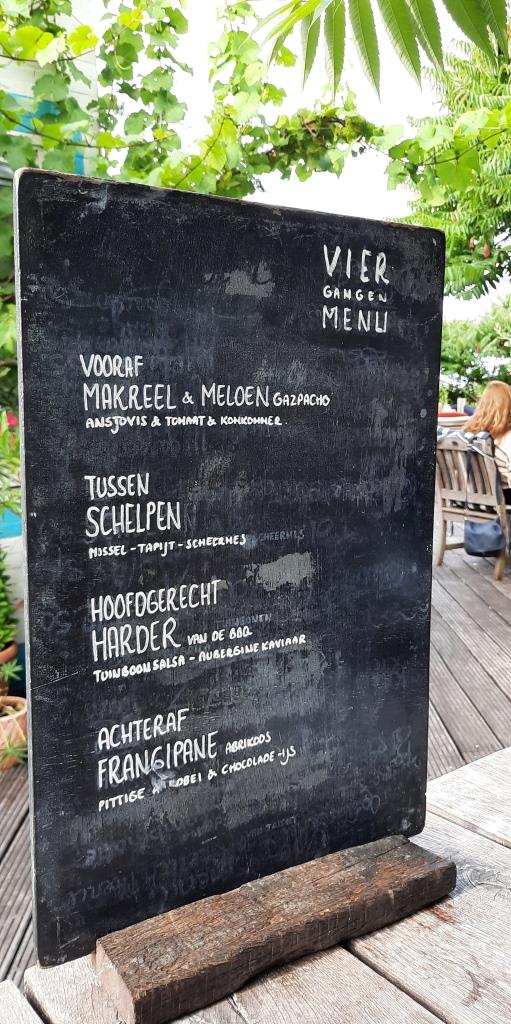 VIER
GANGEN
MENU
VOORAF
MAKREEL & MELOEN GAZPACHO
ANSJOVIS & TOMAAT & KOMKOMMER
TUSSEN
SCHELPEN
MOSSEL - TAPIJT - SCHEERMES
HOOFDGERECHT
HARDER VAN DE BBQ
TUINBOONSALSA - AUBERGINE KAVIAAR
ACHTERAF
FRANGIPANE ABRIKOOS
PITTIGE & CHOCOLADE-IJS